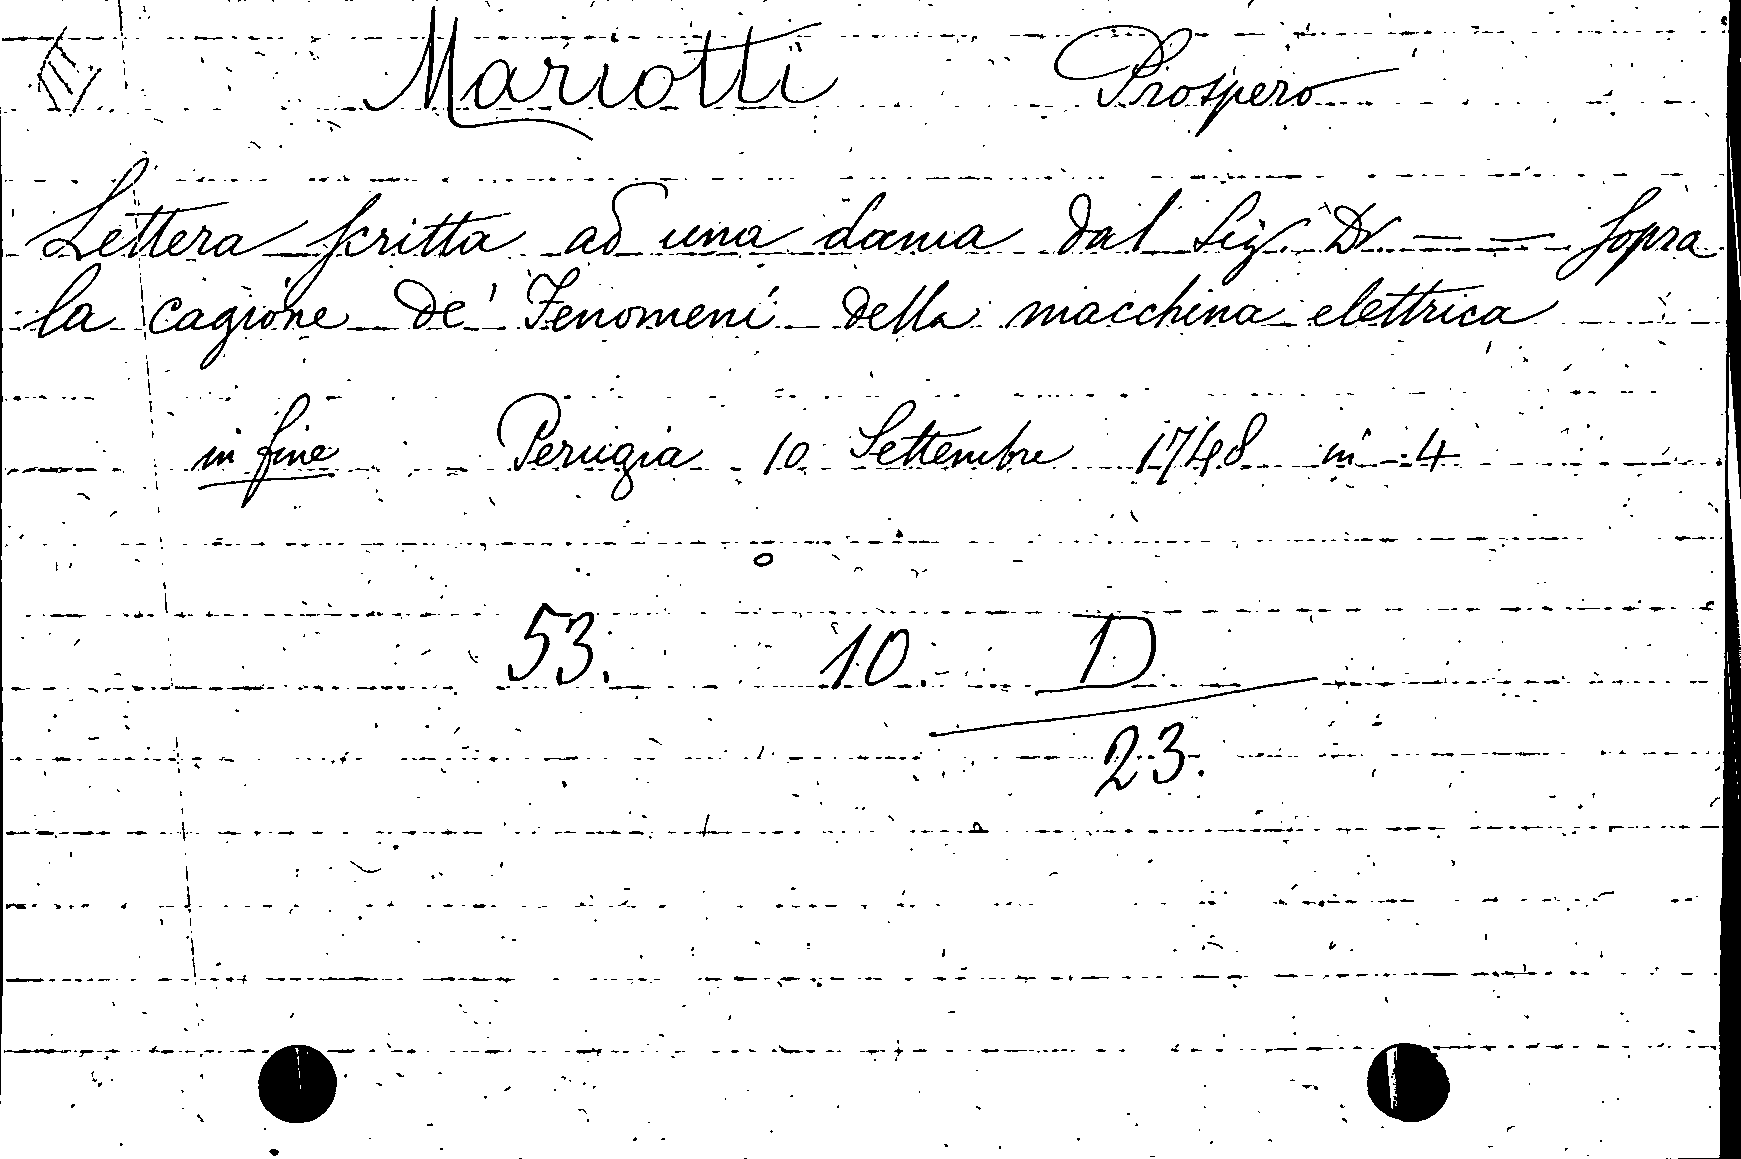 Mariotti Prospero
Lettera scritta ad una dama dal Sig. Dr — — sopra
la cagione de' Fenomeni della macchina elettrica
in fine Perugia 10 Settembre 1748 in 4
53. 10. D
23.